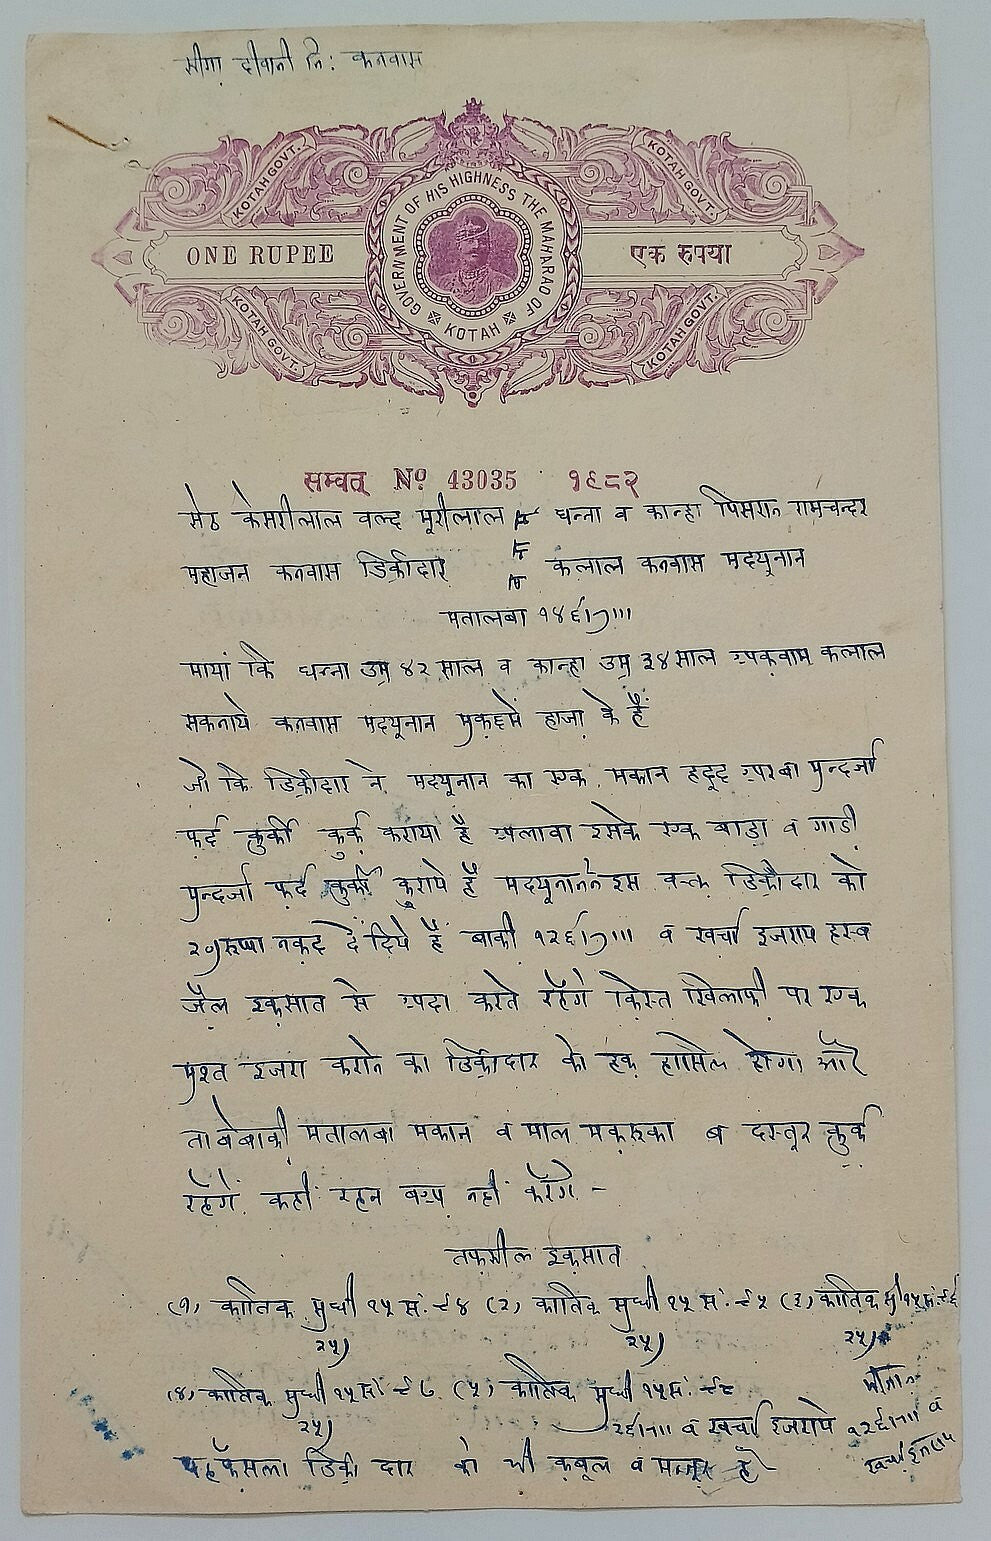 सीगा दीवानी नि: कनवास
KOTAH GOVT.
KOTAH GOVT.
GOVERNMENT OF HIS HIGHNESS THE MAHARAO OF KOTAH
ONE RUPEE
एक रुपया
KOTAH GOVT.
KOTAH GOVT.
सम्वत् Nº 43035 १९८२
सेठ केसरीलाल वल्द मूरीलाल बनाम धन्ना व कान्हा पिसरान रामचन्दर
महाजन कनवास डिक्रीदार कलाल कनवास मदयूनान
मतालबा १४६।)।।।
मायां कि धन्ना उम्र ४२ साल व कान्हा उम्र ३४ साल अकवाम कलाल
सकनाये कनवास मदयूनान मुकद्दमें हाजा के हैं
जो कि डिक्रीदार ने मदयूनान का एक मकान हदूद अरबा मुन्दर्जा
फर्द कुर्की कुर्क कराया है अलावा इसके एक बाडा व गाडी
मुन्दर्जा फर्द कुर्की कुराये हैं मदयूनानने इस वक्त डिक्रीदार को
२०)रुपया नकद दे दिये हैं बाकी १२६।)।।। व खर्चा इजराय हस्ब
जैल इकसात से अदा करते रहेंगे किस्त खिलाफी पर एक
मुश्त इजरा कराने का डिक्रीदार को हक हासिल होगा और
ताबेबाकी मतालबा मकान व माल मकरूका ब दस्तूर कुर्क
रहेंगे कहीं रहन बय नहीं करेंगे -
तफसील इकसात
(१) कातिक सुधी १५ सं. ८४ (२) कातिक सुधी १५ सं. ८५ (३) कातिक सुधी १५ सं. ८६
२५) २५) २५)
(४) कातिक सुधी १५ सं. ८७ (५) कातिक सुधी १५ सं. ८८ मीजान
२५) २६।)।।। व खर्चा इजराये १२६।)।।। व
खर्चा इजराय
यह फैसला डिक्री दार को भी कबूल व मन्जूर है -